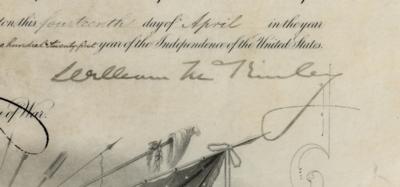 ton this fourteenth day of April in the year
hundred & twenty first year of the Independence of the United States.
William McKinley
of War.